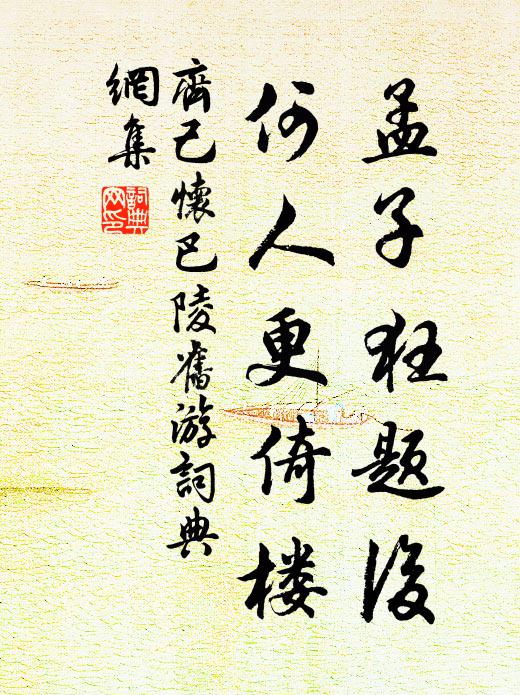 孟子狂题後
何人更倚楼
齊己懷巴陵舊游詞典
網集
詞典
网印